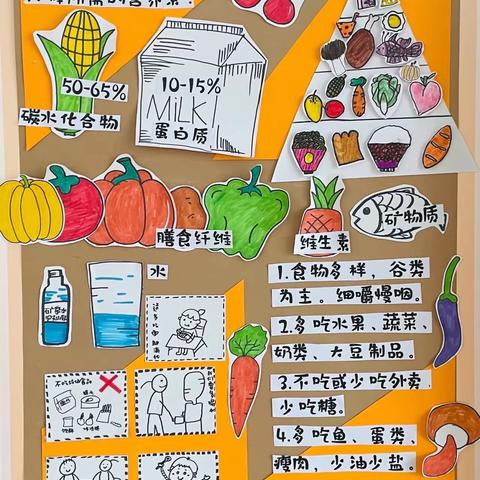 人体所需的营养素
50-65%
碳水化合物
10-15%
MiLK
蛋白质
膳食纤维
维生素
矿物质
水
矿泉水
1.食物多样，谷类
为主。细嚼慢咽。
2.多吃水果、蔬菜、
奶类、大豆制品。
3.不吃或少吃外卖
少吃糖。
4.多吃鱼、蛋类、
瘦肉，少油少盐。
不吃垃圾食品